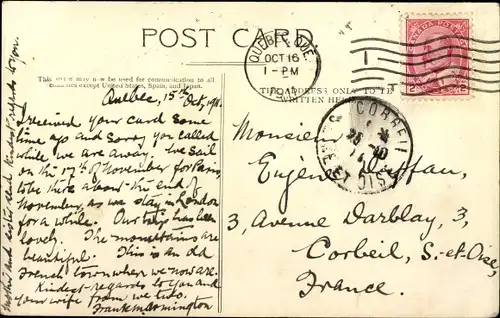 POST CARD.
QUEBEC, QUE.
OCT 16
1-PM
CANADA POSTAGE
This space may now be used for communication to all
countries except United States, Spain, and Japan.
THE ADDRESS ONLY TO BE
WRITTEN HERE
Quebec, 15th Oct,
I received your card some
time ago and sorry you called
while we are away. We sail
on the 17th of November for Paris
to be there about the end of
November, as we stay in London
for a while. Our trip has been
lovely. The mountains are
beautiful. This is an old
French town where we now are.
Kindest regards to you and
your wife from we two.
Frank M. Armington
Mother and sister send kindest regards to you.
CORBEIL
SEINE ET OISE
Monsieur
Eugène
3, Avenue Darblay, 3,
Corbeil, S.-et-Oise,
France.